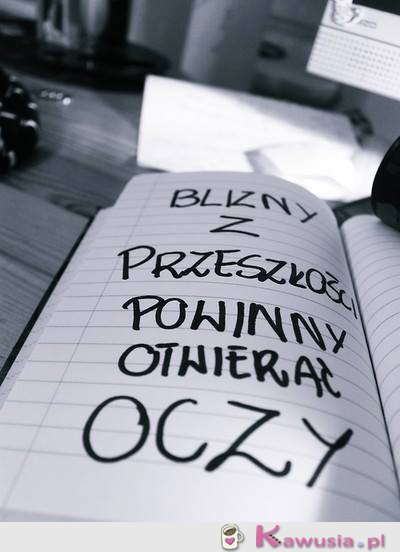 BLIZNY
Z
PRZESZŁOŚCI
POWINNY
OTWIERAĆ
OCZY
Kawusia.pl